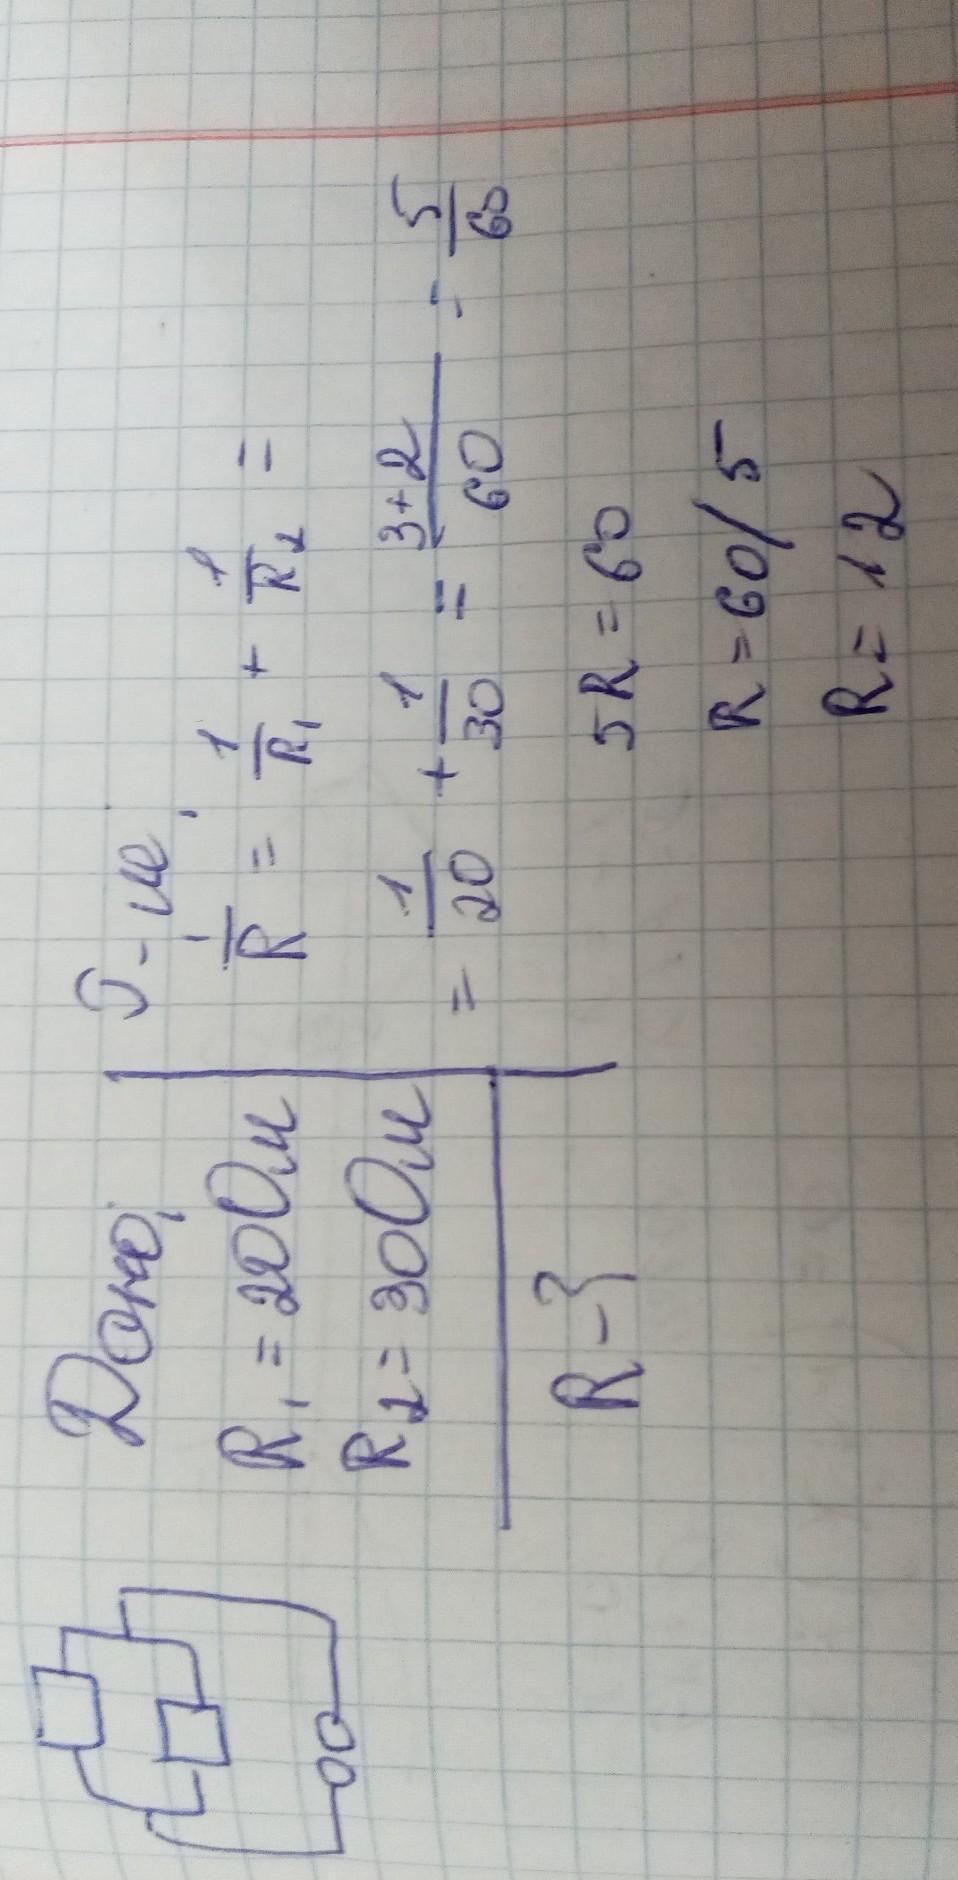 Дано:
R₁ = 20 Ом
R₂ = 30 Ом
R - ?
1/R = 1/R₁ + 1/R₂ =
= 1/20 + 1/30 = 3+2/60 = 5/60
5R = 60
R = 60/5
R = 12